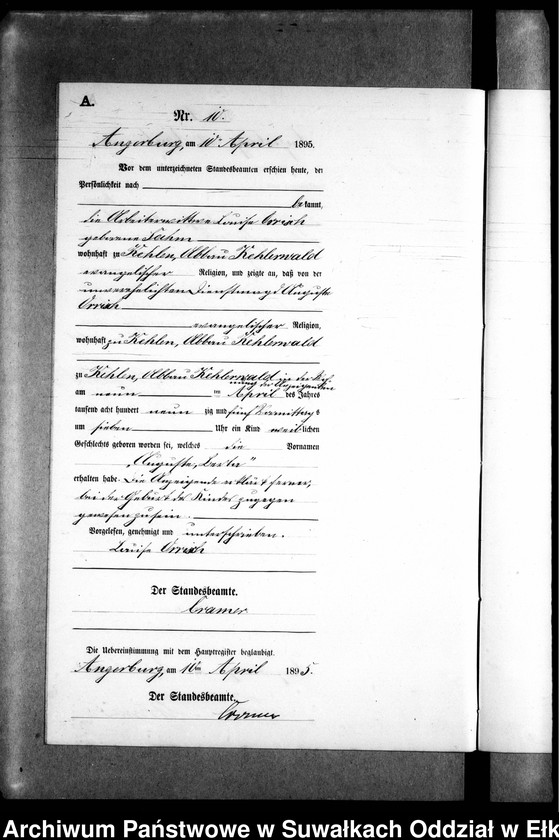 A.
Nr. 10.
Angerburg, am 10ten April 1895.
Vor dem unterzeichneten Standesbeamten erschien heute, der
Persönlichkeit nach
bekannt,
die Arbeiterwittwe Louise
geborene
wohnhaft zu Kehlen, Abbau Kehlerwald
evangelischer Religion, und zeigte an, daß von der
unverehelichten Dienstmagd Auguste
evangelischer Religion,
wohnhaft zu Kehlen, Abbau Kehlerwald
zu Kehlen, Abbau Kehlerwald in der Woh-
nung der Anzeigenden
am neun ten April des Jahres
tausend acht hundert neunzig und fünf Vormittags
um sieben Uhr ein Kind weiblichen
Geschlechts geboren worden sei, welches die Vornamen
„Auguste, Berta“
erhalten habe. Die Anzeigende erklärt ferner,
bei der Geburt des Kindes zugegen
gewesen zu sein.
Vorgelesen, genehmigt und unterschrieben.
Louise
Der Standesbeamte.
Cramer
Die Uebereinstimmung mit dem Hauptregister beglaubigt.
Angerburg, am 10ten April 1895.
Der Standesbeamte.
Cramer
Archiwum Państwowe w Suwałkach Oddział w Ełk